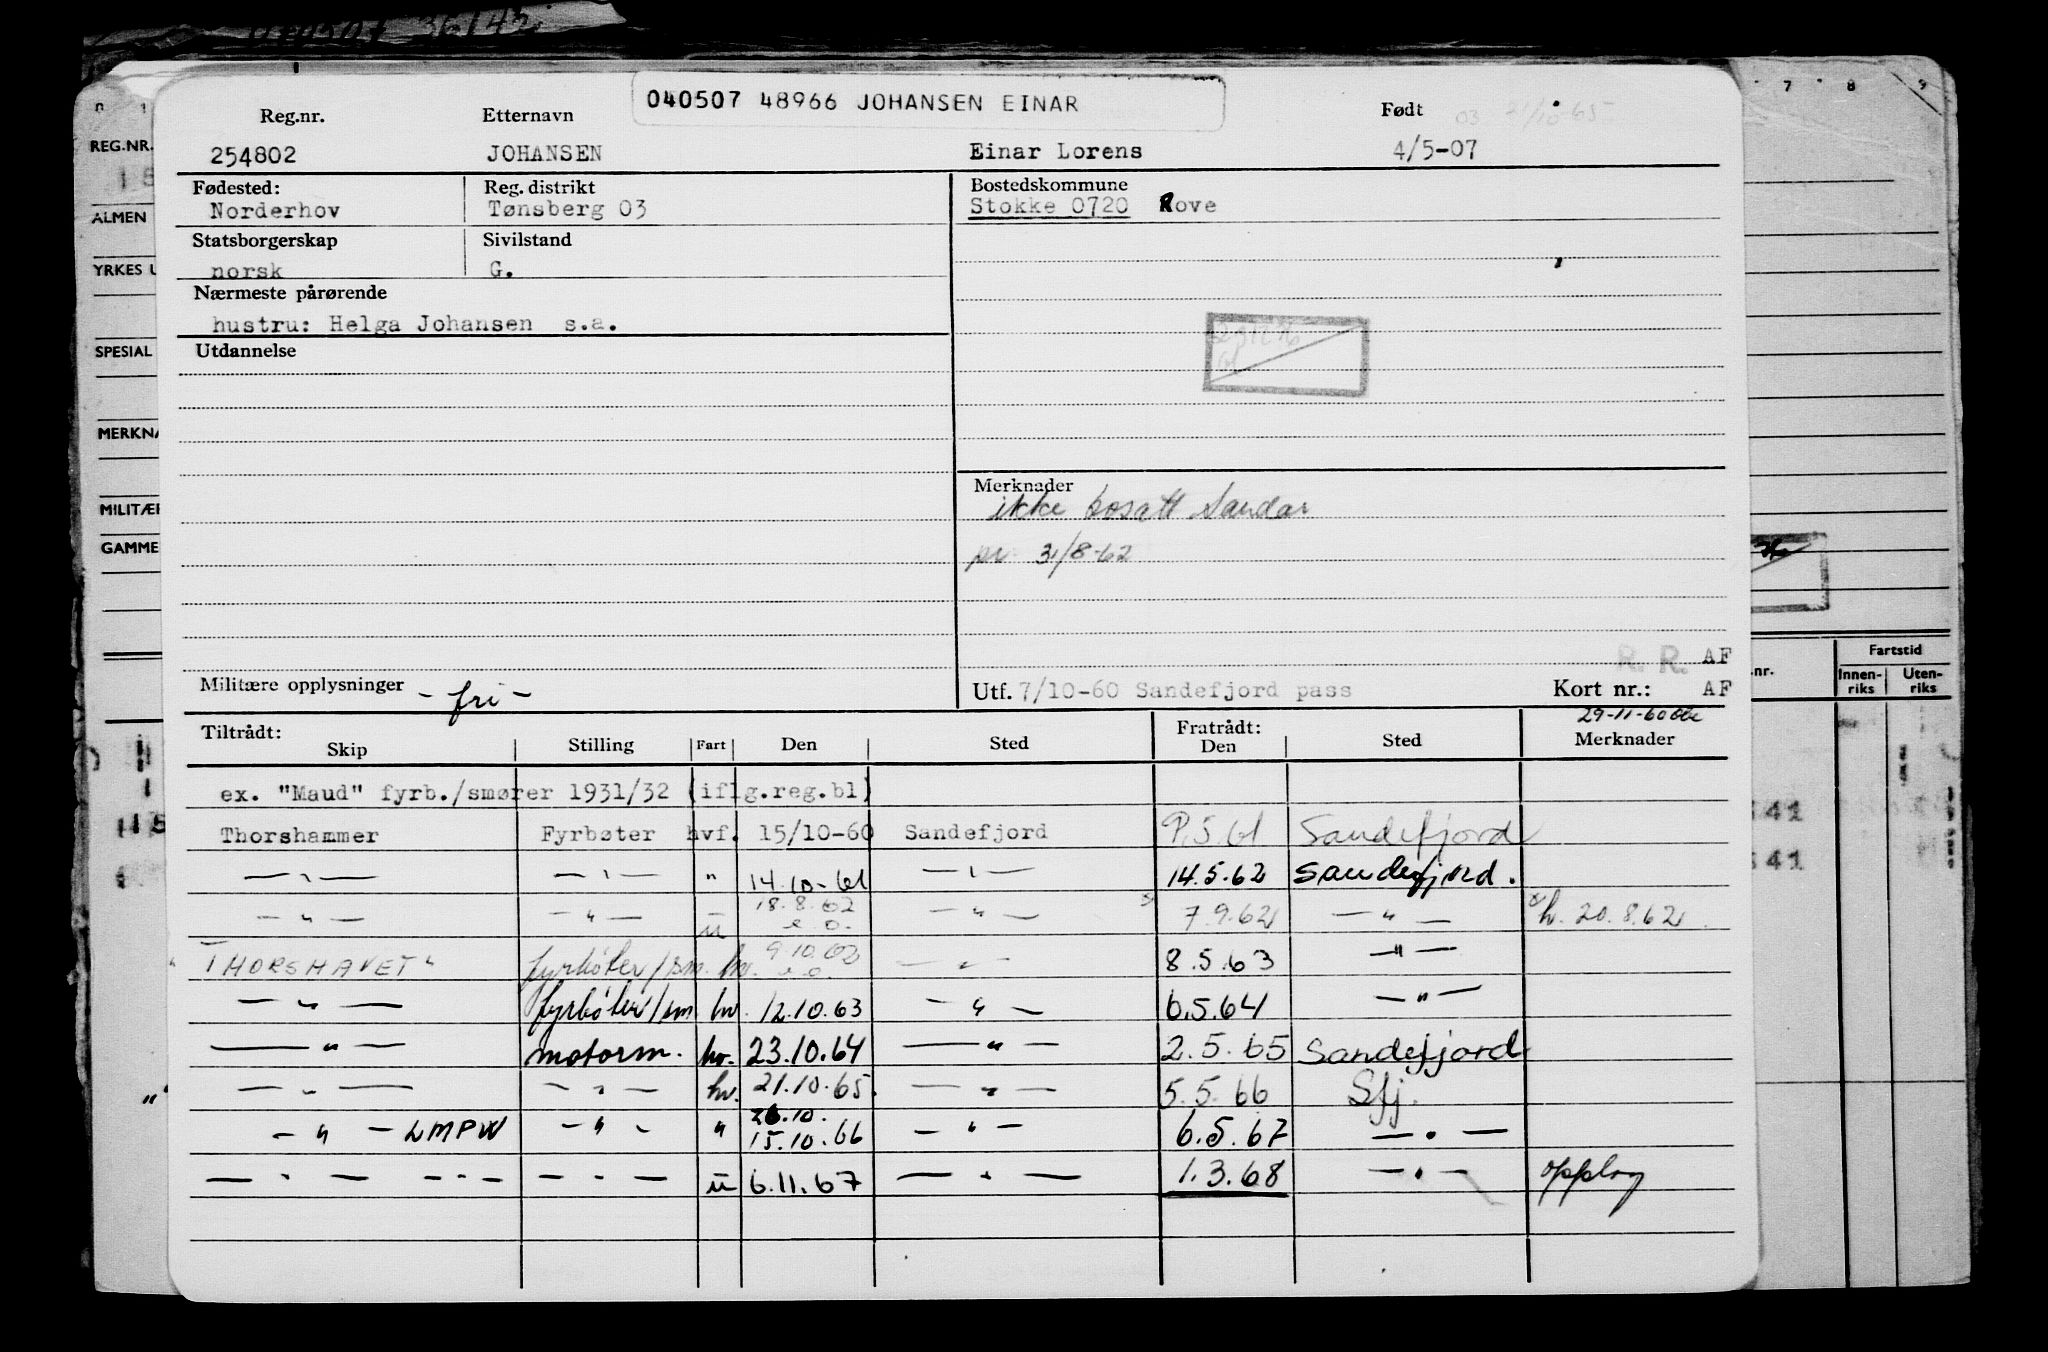 36/43
040507 48966 JOHANSEN EINAR
Reg.nr. Etternavn Født
254802 JOHANSEN Einar Lorens 4/5-07
Fødested: Reg. distrikt Bostedskommune
Norderhov Tønsberg 03 Stokke 0720 Rove
Statsborgerskap Sivilstand
norsk G.
Nærmeste pårørende
hustru: Helga Johansen s.a.
Utdannelse
Merknader
ikke bosatt Sandar
pr 31/8-62
R. R. AF
Militære opplysninger - fri - Utf. 7/10-60 Sandefjord pass Kort nr.: AF
29-11-60
Tiltrådt: Fratrådt:
Skip Stilling Fart Den Sted Den Sted Merknader
ex. "Maud" fyrb./smører 1931/32 (iflg.reg.bl)
Thorshammer Fyrbøter hvf. 15/10-60 Sandefjord 9.5.61 Sandefjord
— " — — " — " 14.10-61 — " — 14.5.62 Sandefjord.
— " — — " — u 18.8.62 — " — 7.9.62 — " — h. 20.8.62
"THORSHAVET" fyrbøter/sm. hv. 9.10.62 — " — 8.5.63 — " —
— " — fyrbøter/sm hv. 12.10.63 — " — 6.5.64 — " —
— " — motorm. hv. 23.10.64 — " — 2.5.65 Sandefjord
— " — — " — hv. 21.10.65. — " — 5.5.66 Sfj.
26.10.
— " — LMPW — " — " 15.10.66 — " — 6.5.67 — " —
— " — — " — — " — u 6.11.67 — " — 1.3.68 — " — opplag
REG.NR.
ALMEN
YRKES U
SPESIAL
MERKNA
MILITÆR
GAMME
7 8 9
.nr. Fartstid
Innen-riks Uten-riks
41
41